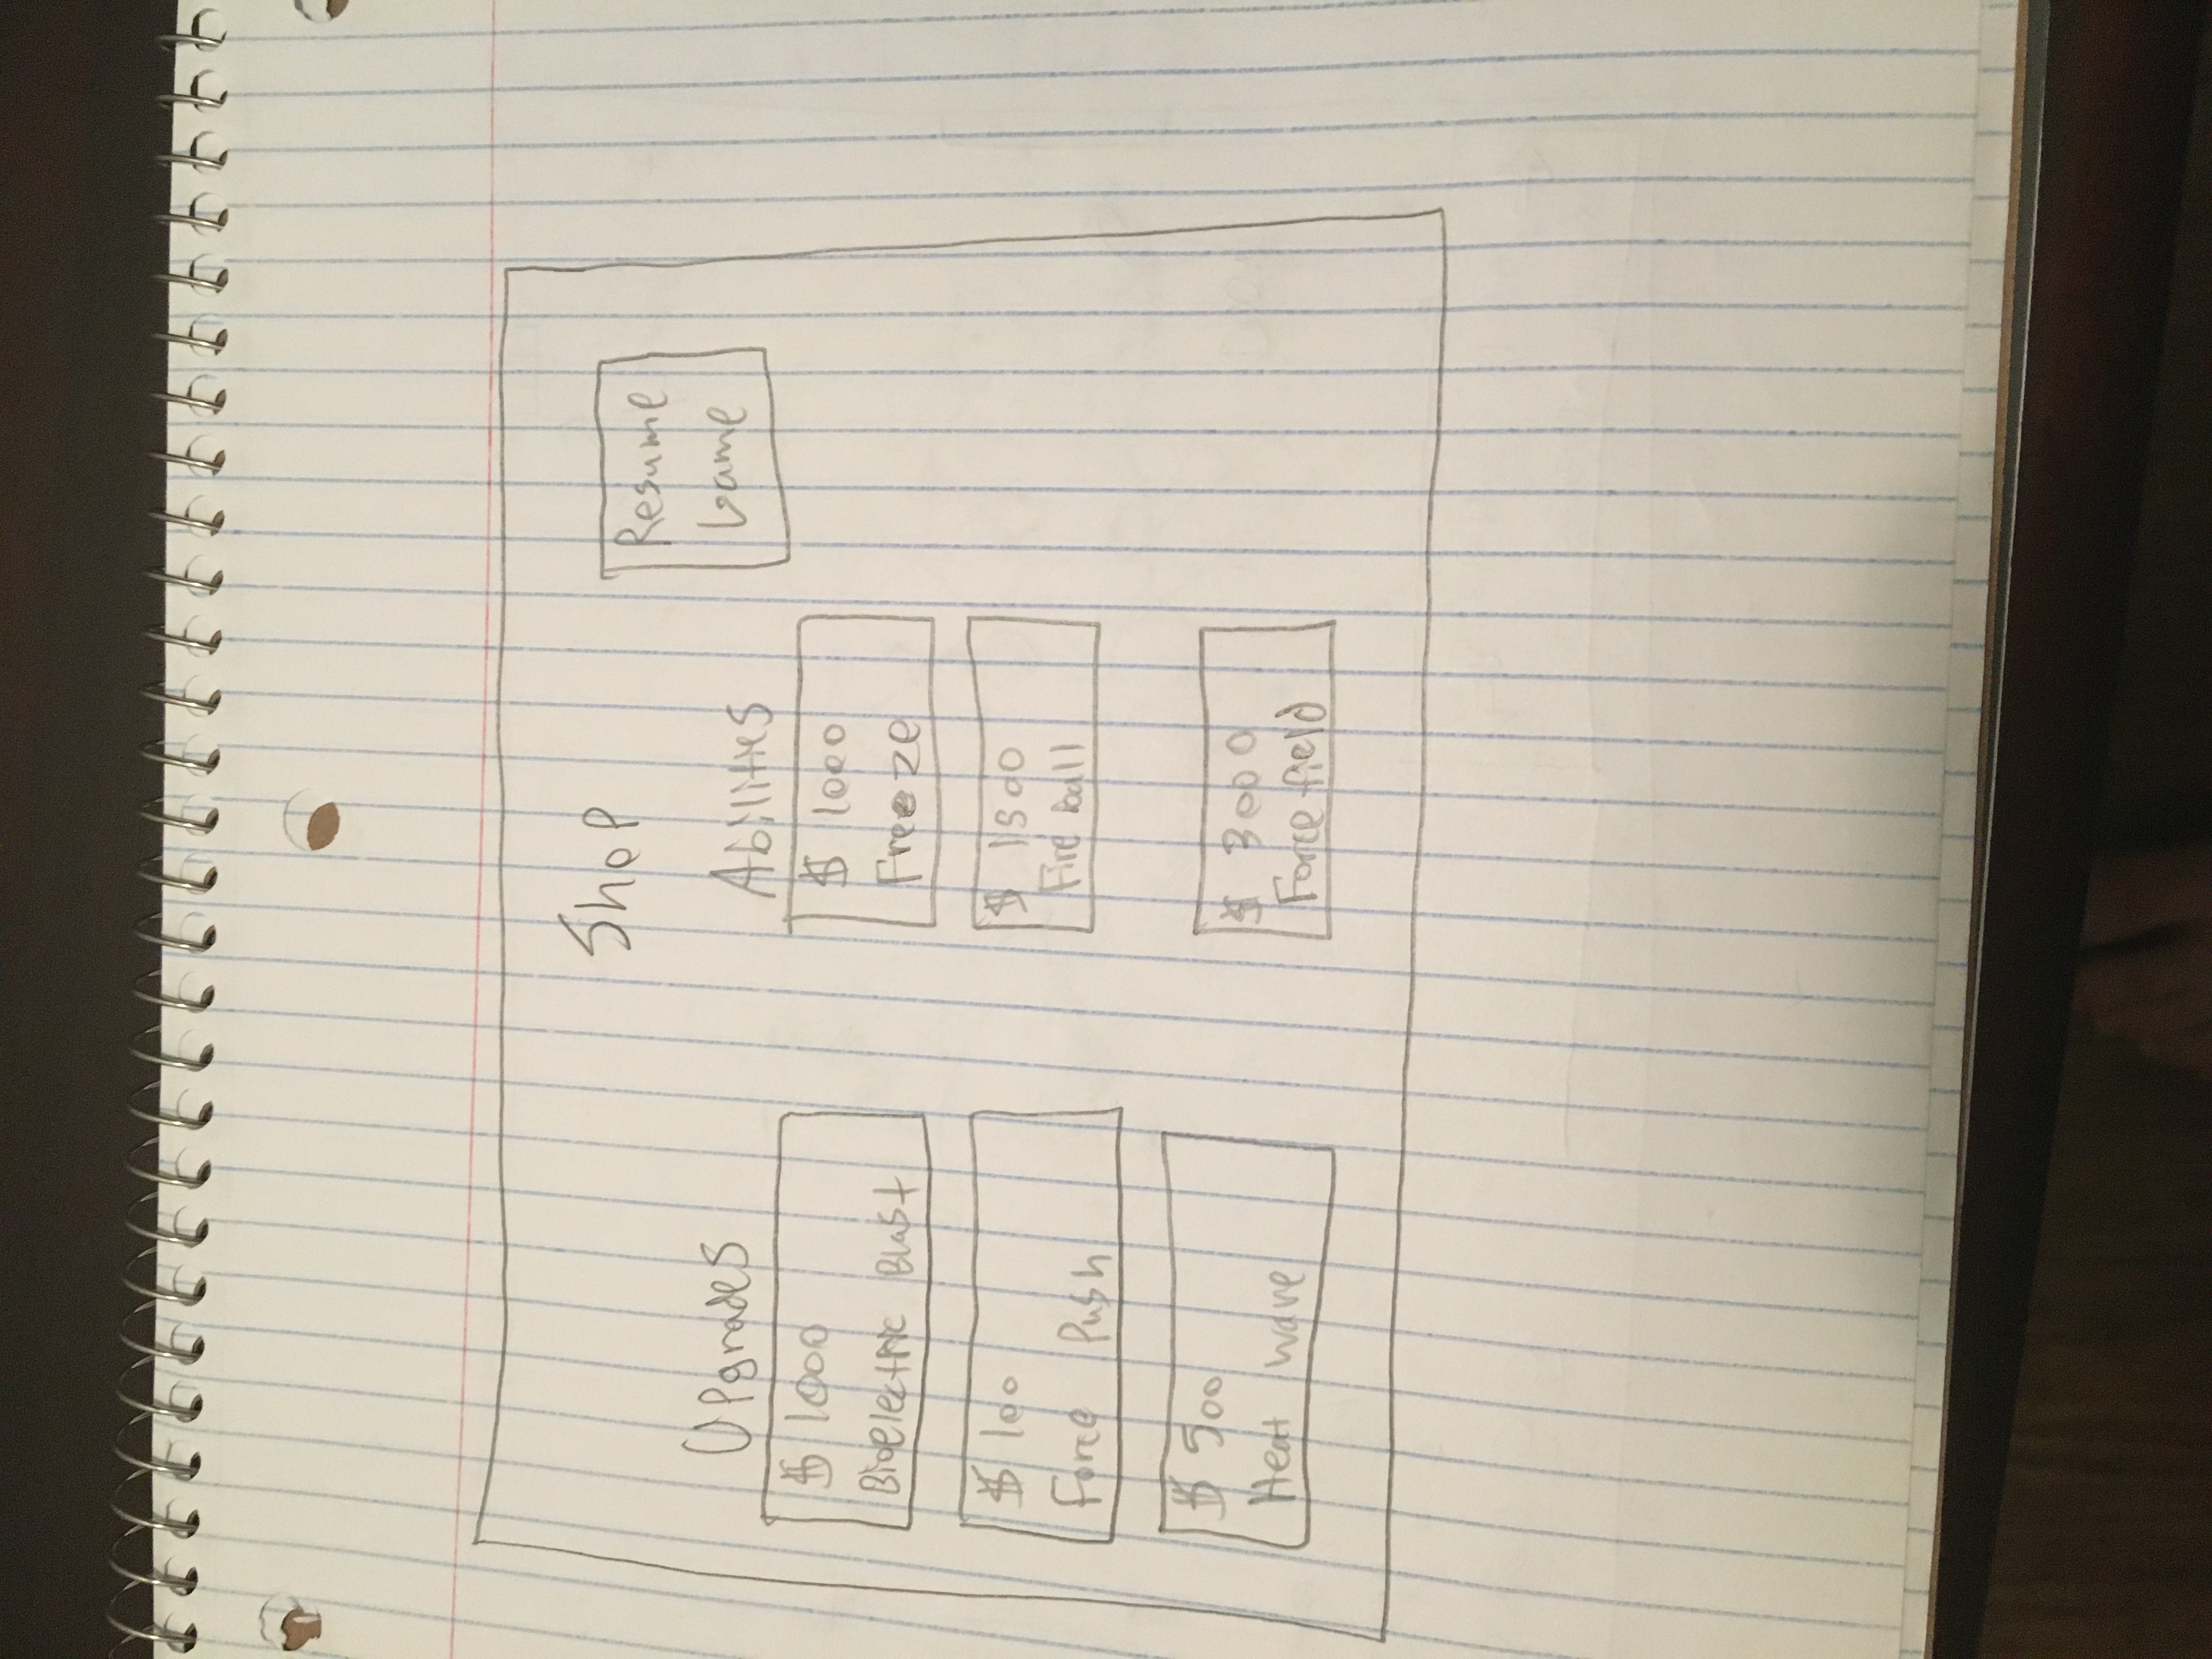 Shop
Resume
Game
Upgrades
$ 1000
Bioelectric Blast
$ 100
Force Push
$ 500
Heat wave
Abilities
$ 1000
Freeze
$ 1500
Fire ball
$ 3000
Force field